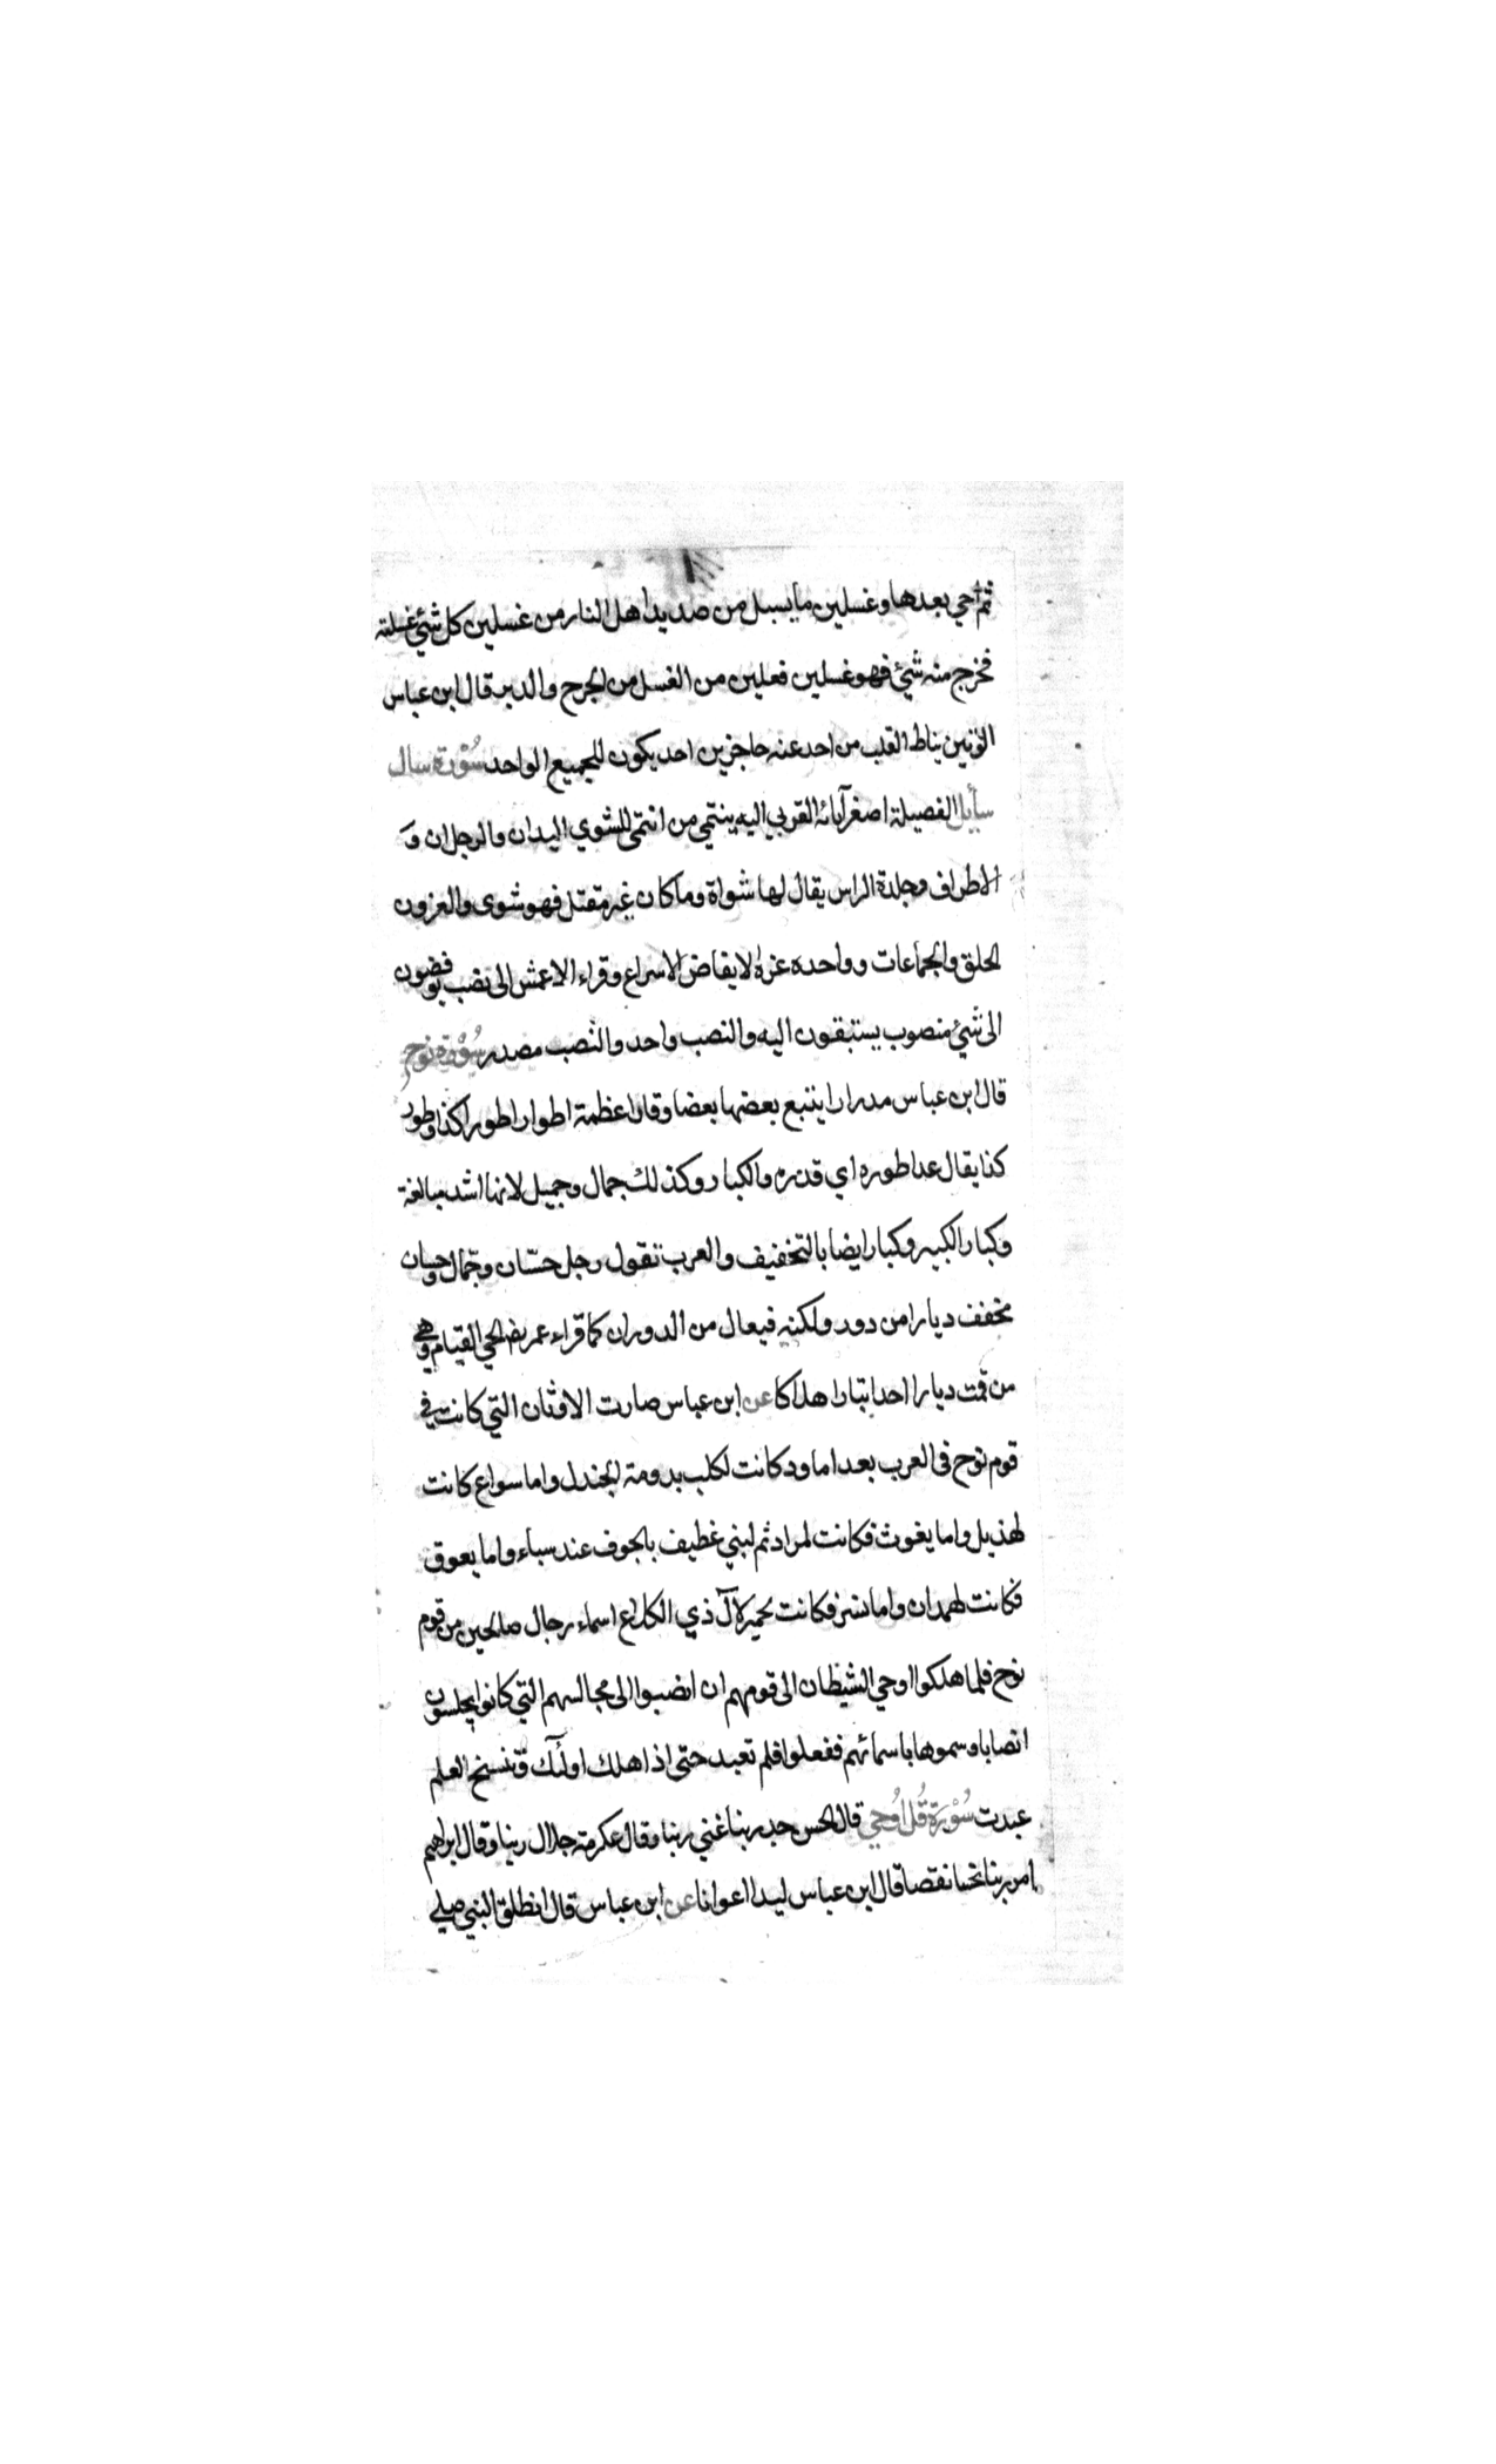 ثم احي بعدها وغسلين ما يسيل من صديد اهل النار من غسلين كل شئ غسلته
فخرج منه شئ فهو غسلين فعلين من الغسل من الجرح والدبر قال ابن عباس
الوتين نياط القلب من احد عنه حاجزين احد يكون للجميع الواحد سُوْرة سال
سأيل الفصيلة اصغر آبائه القربي اليه ينتمي من انتمى للشوي اليدان والرجلان و
الاطراف وجلدة الراس يقال لها شواة وما كان غير مقتل فهو شوى والعزون
الحلق والجماعات وواحده عزة الايفاض الاسراع وقراء الاعمش الى نصب يوفضون
الى شئ منصوب يستبقون اليه والنصب واحد والنصب مصدر سُوْرة نوح
قال ابن عباس مدرارا يتبع بعضها بعضا وقارا عظمة اطوارا طورا كذا وطور
كذا يقال عدا طوره اي قدره والكبار وكذلك جمال وجميل لانها اشد مبالغة
وكبار الكبير وكبارا ايضا بالتخفيف والعرب تقول رجل حسّان وجمّال وحسان
مخفف ديارا من دور ولكنه فيعال من الدوران كما قراء عمر رض الحي القيام وهي
من قمت ديارا احدا تبارا هلاكا عن ابن عباس صارت الاوثان التي كانت في
قوم نوح في العرب بعد اما ود كانت لكلب بدومة الجندل واما سواع كانت
لهذيل واما يغوث فكانت لمراد ثم لبني غطيف بالجوف عند سباء واما يعوق
فكانت لهمدان واما نسر فكانت لحمير لآل ذي الكلاع اسماء رجال صالحين من قوم
نوح فلما هلكوا اوحي الشيطان الى قومهم ان انصبوا الى مجالسهم التي كانوا يجلسون
انصابا وسموها باسمائهم ففعلوا فلم تعبد حتى اذا هلك اولئك وتنسخ العلم
عبدت سُوْرة قُل اُوحي قال الحسن جد ربنا غني ربنا وقال عكرمة جلال ربنا وقال ابراهيم
امر ربنا بخسا نقصا قال ابن عباس لبدا اعوانا عن ابن عباس قال انطلق النبي صلي